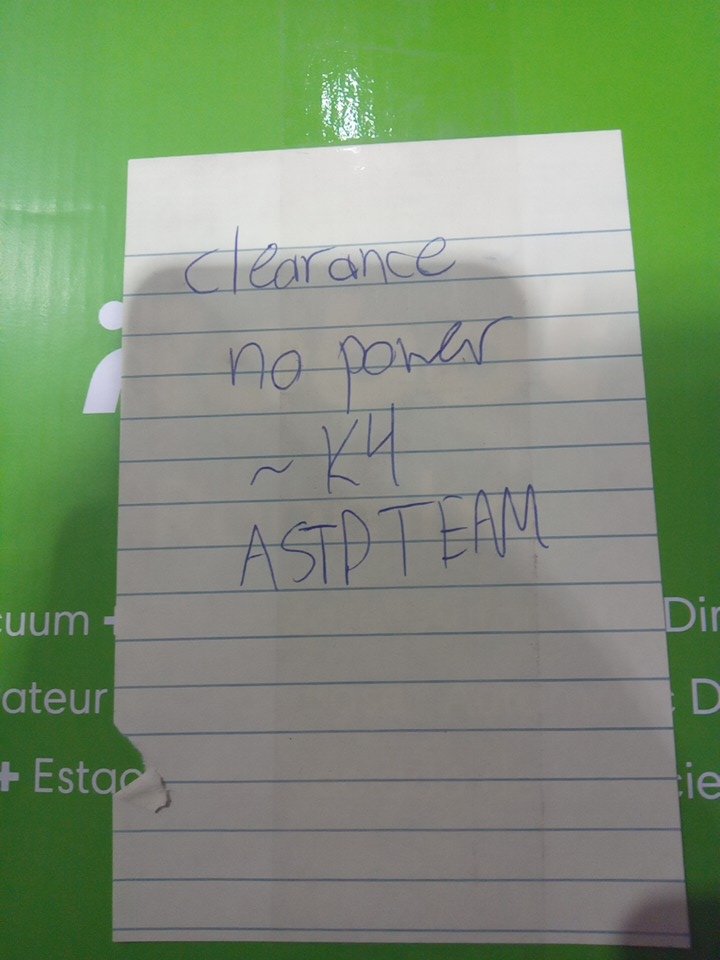 clearance
no power
~ K4
ASTP TEAM
cuum + Dir
ateur c D
+ Estac cie